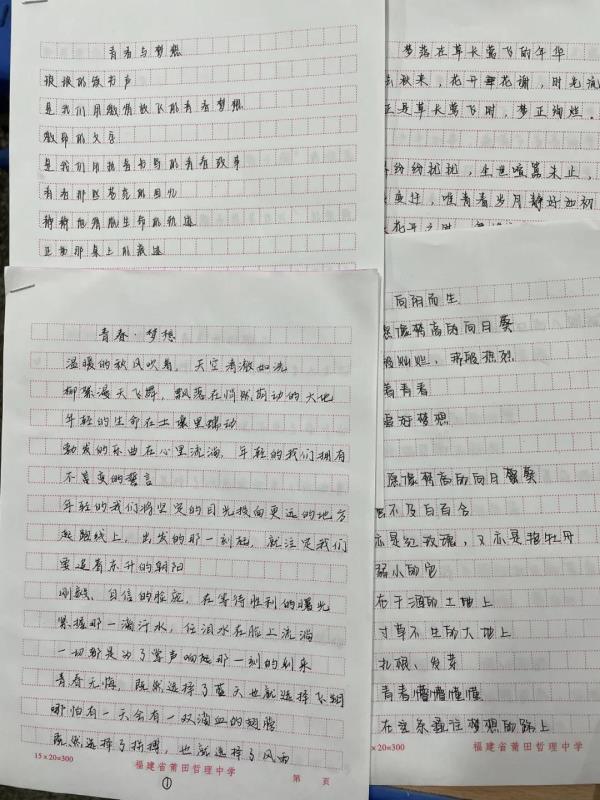 青春与梦想
琅琅的读书声
是我们用激情放飞的青春梦想
是我们用执着书写的青春故事
青春那些
静静地
正如那桌上的痕迹
梦落在草长莺飞的年华
去秋来，花开花谢，时光流
正是草长莺飞时，梦正绚烂。
纷纷扰扰，尘世喧嚣未止，
唯青春岁月静好如初
向阳而生
愿像努高的向日葵
灿烂，热烈
着青春
梦想
愿像努高的向日葵
不及白百合
亦是红玫瑰，又亦是牡丹
弱小的它
在干涸的土地上
寸草不生的大地上
扎根、发芽
青春懵懵懂懂
在追往梦想的路上
15×20=300
福建省莆田哲理中学
青春·梦想
温暖的秋风吹着，天空清澈如洗
柳絮漫天飞舞，飘落在悄然萌动的大地
年轻的生命在土壤里蠕动
勃发的乐曲在心里流淌，年轻的我们拥有
不言变的誓言
年轻的我们将坚定的目光投向更远的地方
起跑线上，出发的那一刻起，就注定我们
要追着东升的朝阳
刚毅、自信的脸庞，在等待胜利的曙光
紧握那一滴汗水，任泪水在脸上流淌
一切都是为了掌声响起那一刻的别采
青春无悔，既然选择了蓝天也就选择飞翔
哪怕有一天会有一双滴血的翅膀
既然选择了拼搏，也就选择了风雨
15×20=300
福建省莆田哲理中学
第 页
①